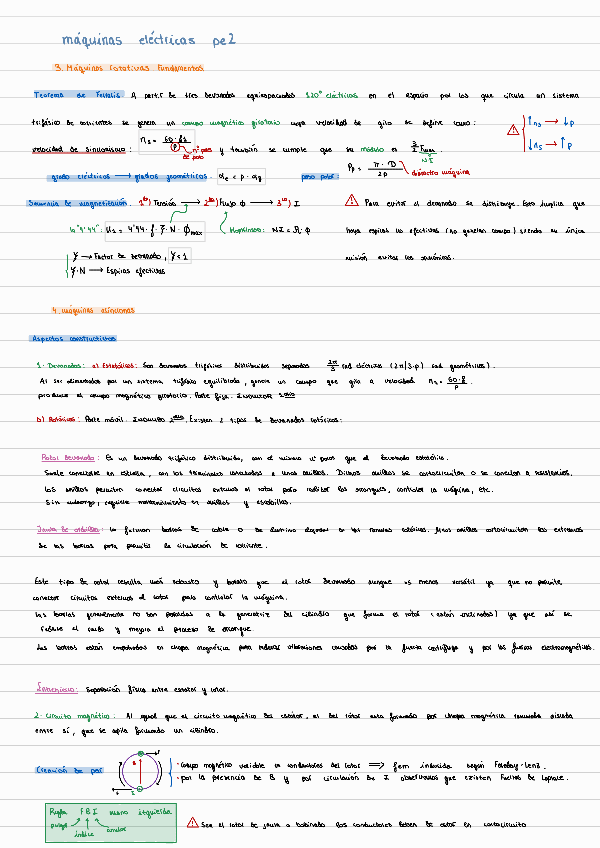 máquinas eléctricas pe2
3. Máquinas rotativas Fundamentos
Teorema de Ferraris A partir de tres devanados equiespaciados 120° eléctricos en el espacio por los que circula un sistema
trifásico de corrientes se genera un campo magnético giratorio cuya velocidad de giro se define como:
velocidad de sincronismo: n_s = 60·f_1 / p nº pares de polo y también se cumple que su módulo es 3/2 F_max
N·I
⚠ ↑n_s → ↓p
↓n_s → ↑p
grados eléctricos → grados geométricos. α_e = p·α_g paso polar: P_p = π·D / 2p → diámetro máquina
Secuencia de magnetización. 1º) Tensión → 2º) Flujo ϕ → 3º) I
la "4'44": U_1 = 4'44·f·ξ·N·ϕ_max Hopkinson: NI = R·ϕ
ξ → Factor de devanado, ξ<1
ξ·N → Espiras efectivas
⚠ Para evitar el devanado se distribuye. Esto implica que
haya espiras no efectivas (no generan campo) siendo su única
misión evitar los armónicos.
4. máquinas asíncronas
Aspectos constructivos
1. Devanados: a) Estatóricos: Son devanados trifásicos distribuidos separados 2π/3 rad eléctricos (2π/3·p) rad geométricos).
Al ser alimentados por un sistema trifásico equilibrado, genera un campo que gira a velocidad n_s = 60·f / p
produce el campo magnético giratorio. Parte fija. INDUCTOR 1ario
b) Rotóricos: Parte móvil. INDUCIDO 2ario. Existen 2 tipos de devanados rotóricos:
Rotor devanado: Es un devanado trifásico distribuido, con el mismo nº polos que el devanado estatórico.
Suele conectarse en estrella, con los terminales conectados a unos anillos. Dichos anillos se cortocircuitan o se conectan a resistencias.
Los anillos permiten conectar circuitos externos al rotor para realizar los arranques, controlar la máquina, etc.
Sin embargo, requiere mantenimiento en anillos y escobillas.
Jaula de ardilla: la forman barras de cobre o de aluminio alojadas en las ranuras rotóricas. Unos anillos cortocircuitan los extremos
de las barras para permitir la circulación de corriente.
Este tipo de rotor resulta más robusto y barato que el rotor devanado aunque es menos versátil ya que no permite
conectar circuitos externos al rotor para controlar la máquina.
Las barras generalmente no son paralelas a la generatriz del cilindro que forma el rotor (están inclinadas) ya que así se
reduce el ruido y mejora el proceso de arranque.
Las barras están empotradas en chapa magnética para reducir vibraciones causadas por la fuerza centrífuga y por las fuerzas electromagnéticas.
Entrehierro: Separación física entre estator y rotor.
2. Circuito magnético: Al igual que el circuito magnético del estator, el del rotor está formado por chapa magnética ranurada aislada
entre sí, que se apila formando un cilindro.
Creación de par
· campo magnético variable en conductores del rotor ⟹ fem inducida según Faraday-Lenz.
· por la presencia de B y por circulación de I observamos que existen Fuerzas de Laplace.
Regla F B I mano izquierda
pulgar índice corazón
⚠ Sea el rotor de jaula o bobinado los conductores deben de estar en cortocircuito